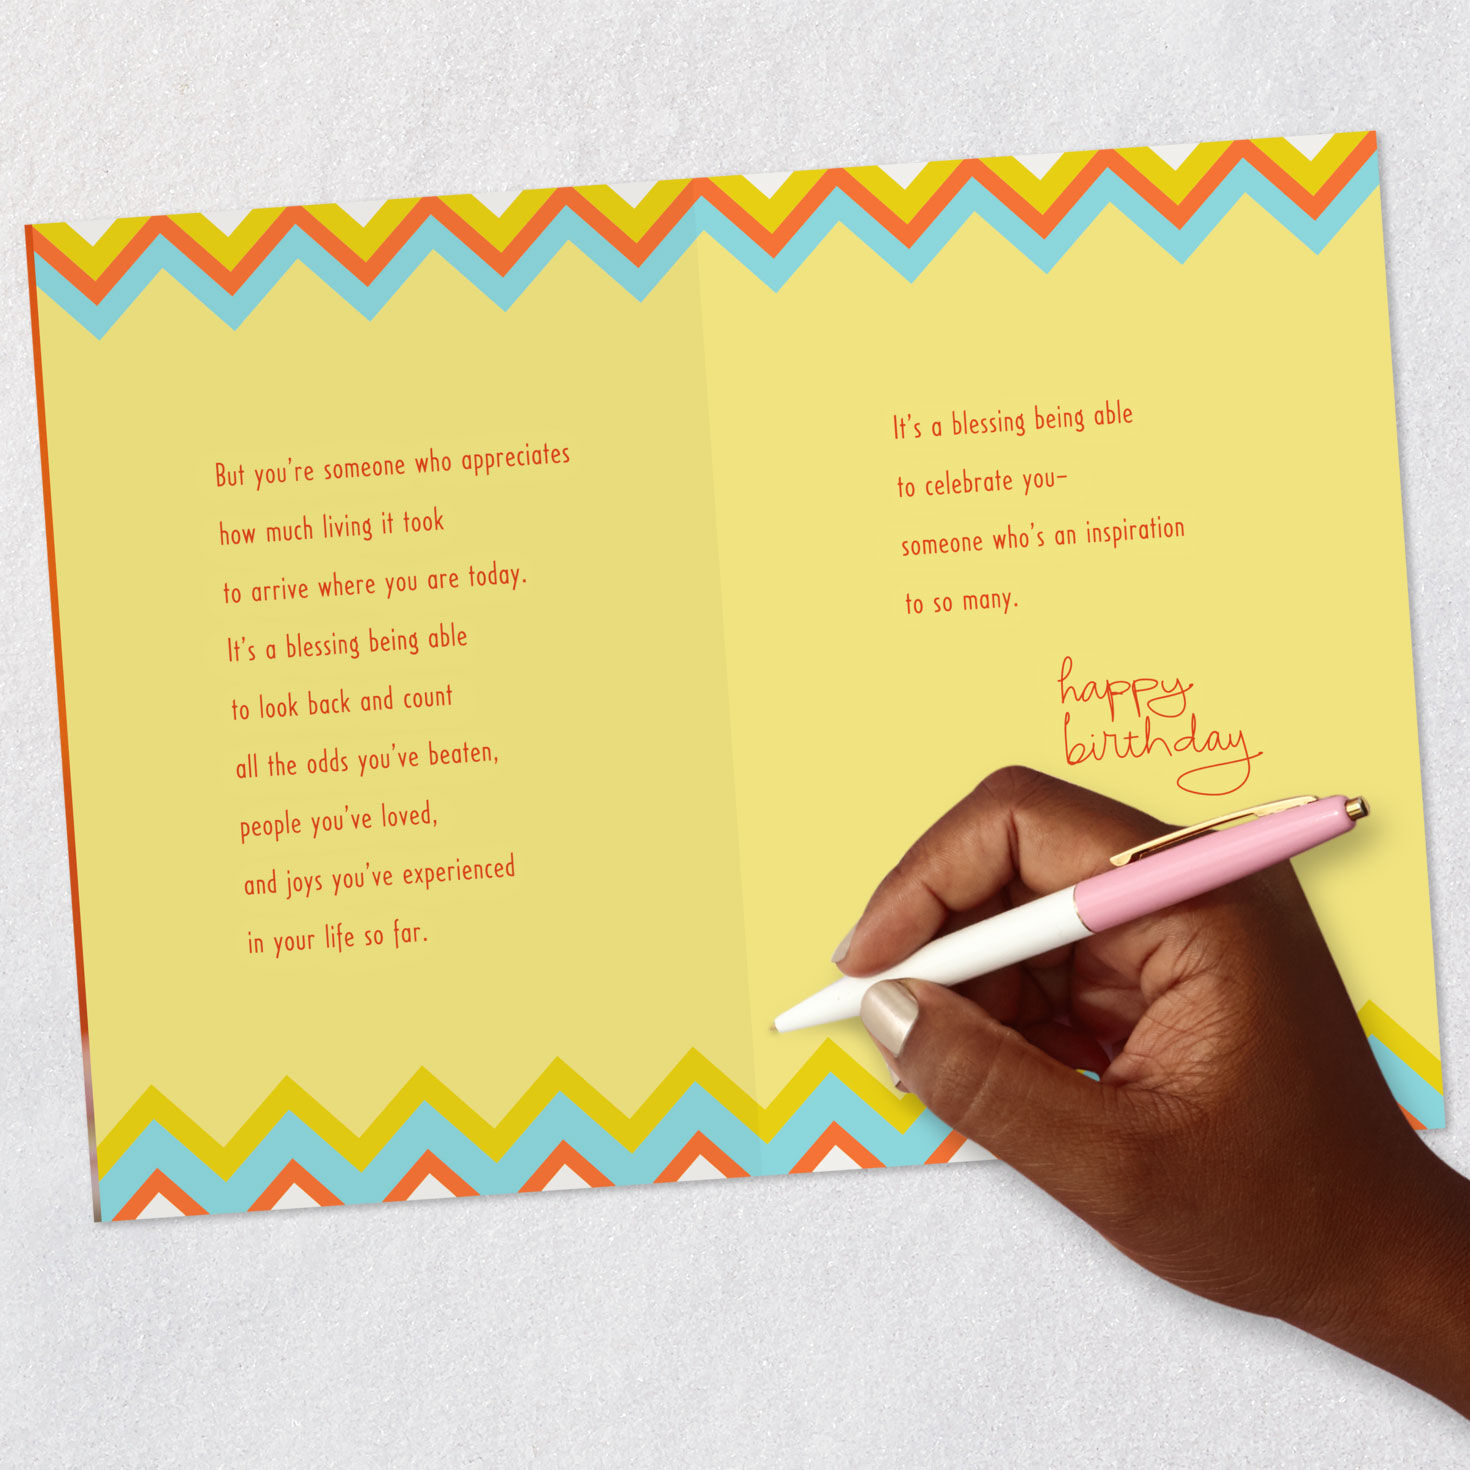 But you're someone who appreciates
how much living it took
to arrive where you are today.
It's a blessing being able
to look back and count
all the odds you've beaten,
people you've loved,
and joys you've experienced
in your life so far.
It's a blessing being able
to celebrate you–
someone who's an inspiration
to so many.
happy
birthday